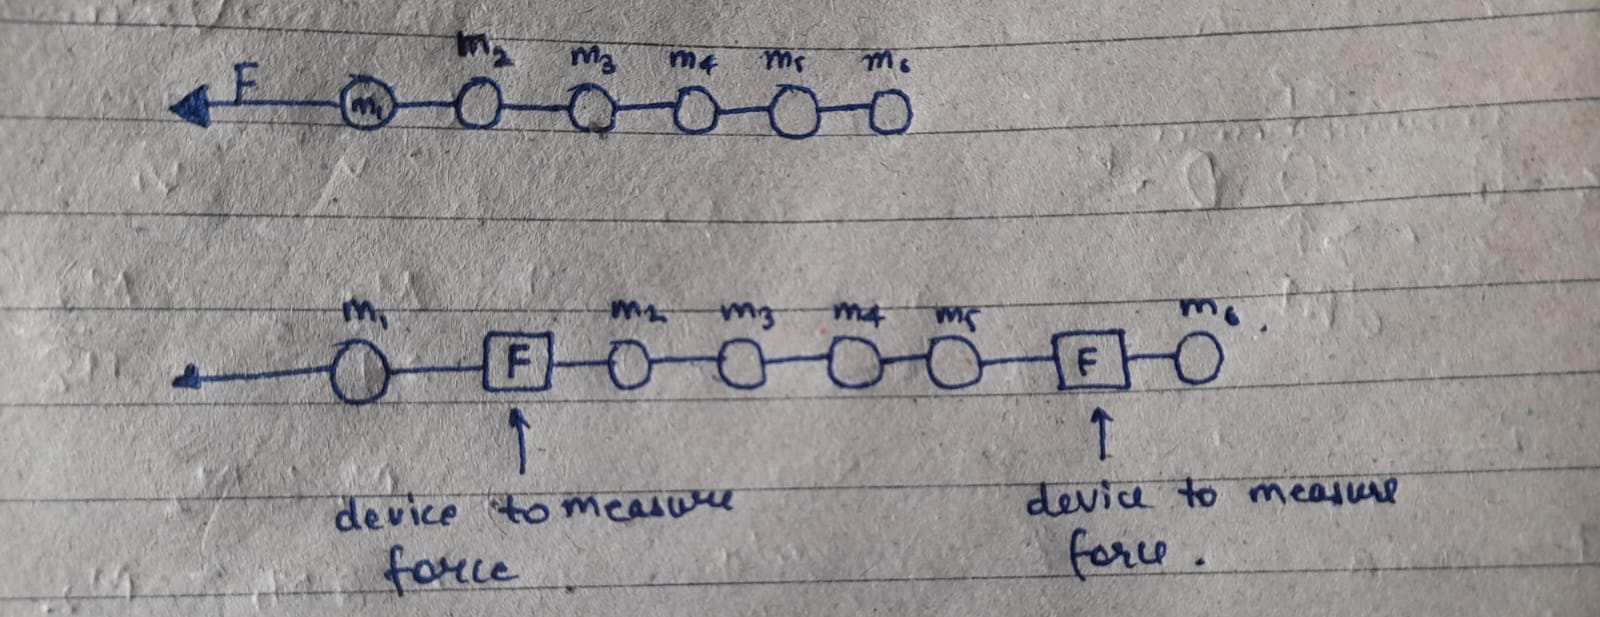 m2 m3 m4 m5 m6
F m1
m1 m2 m3 m4 m5 m6.
F F
device to measure device to measure
force force.